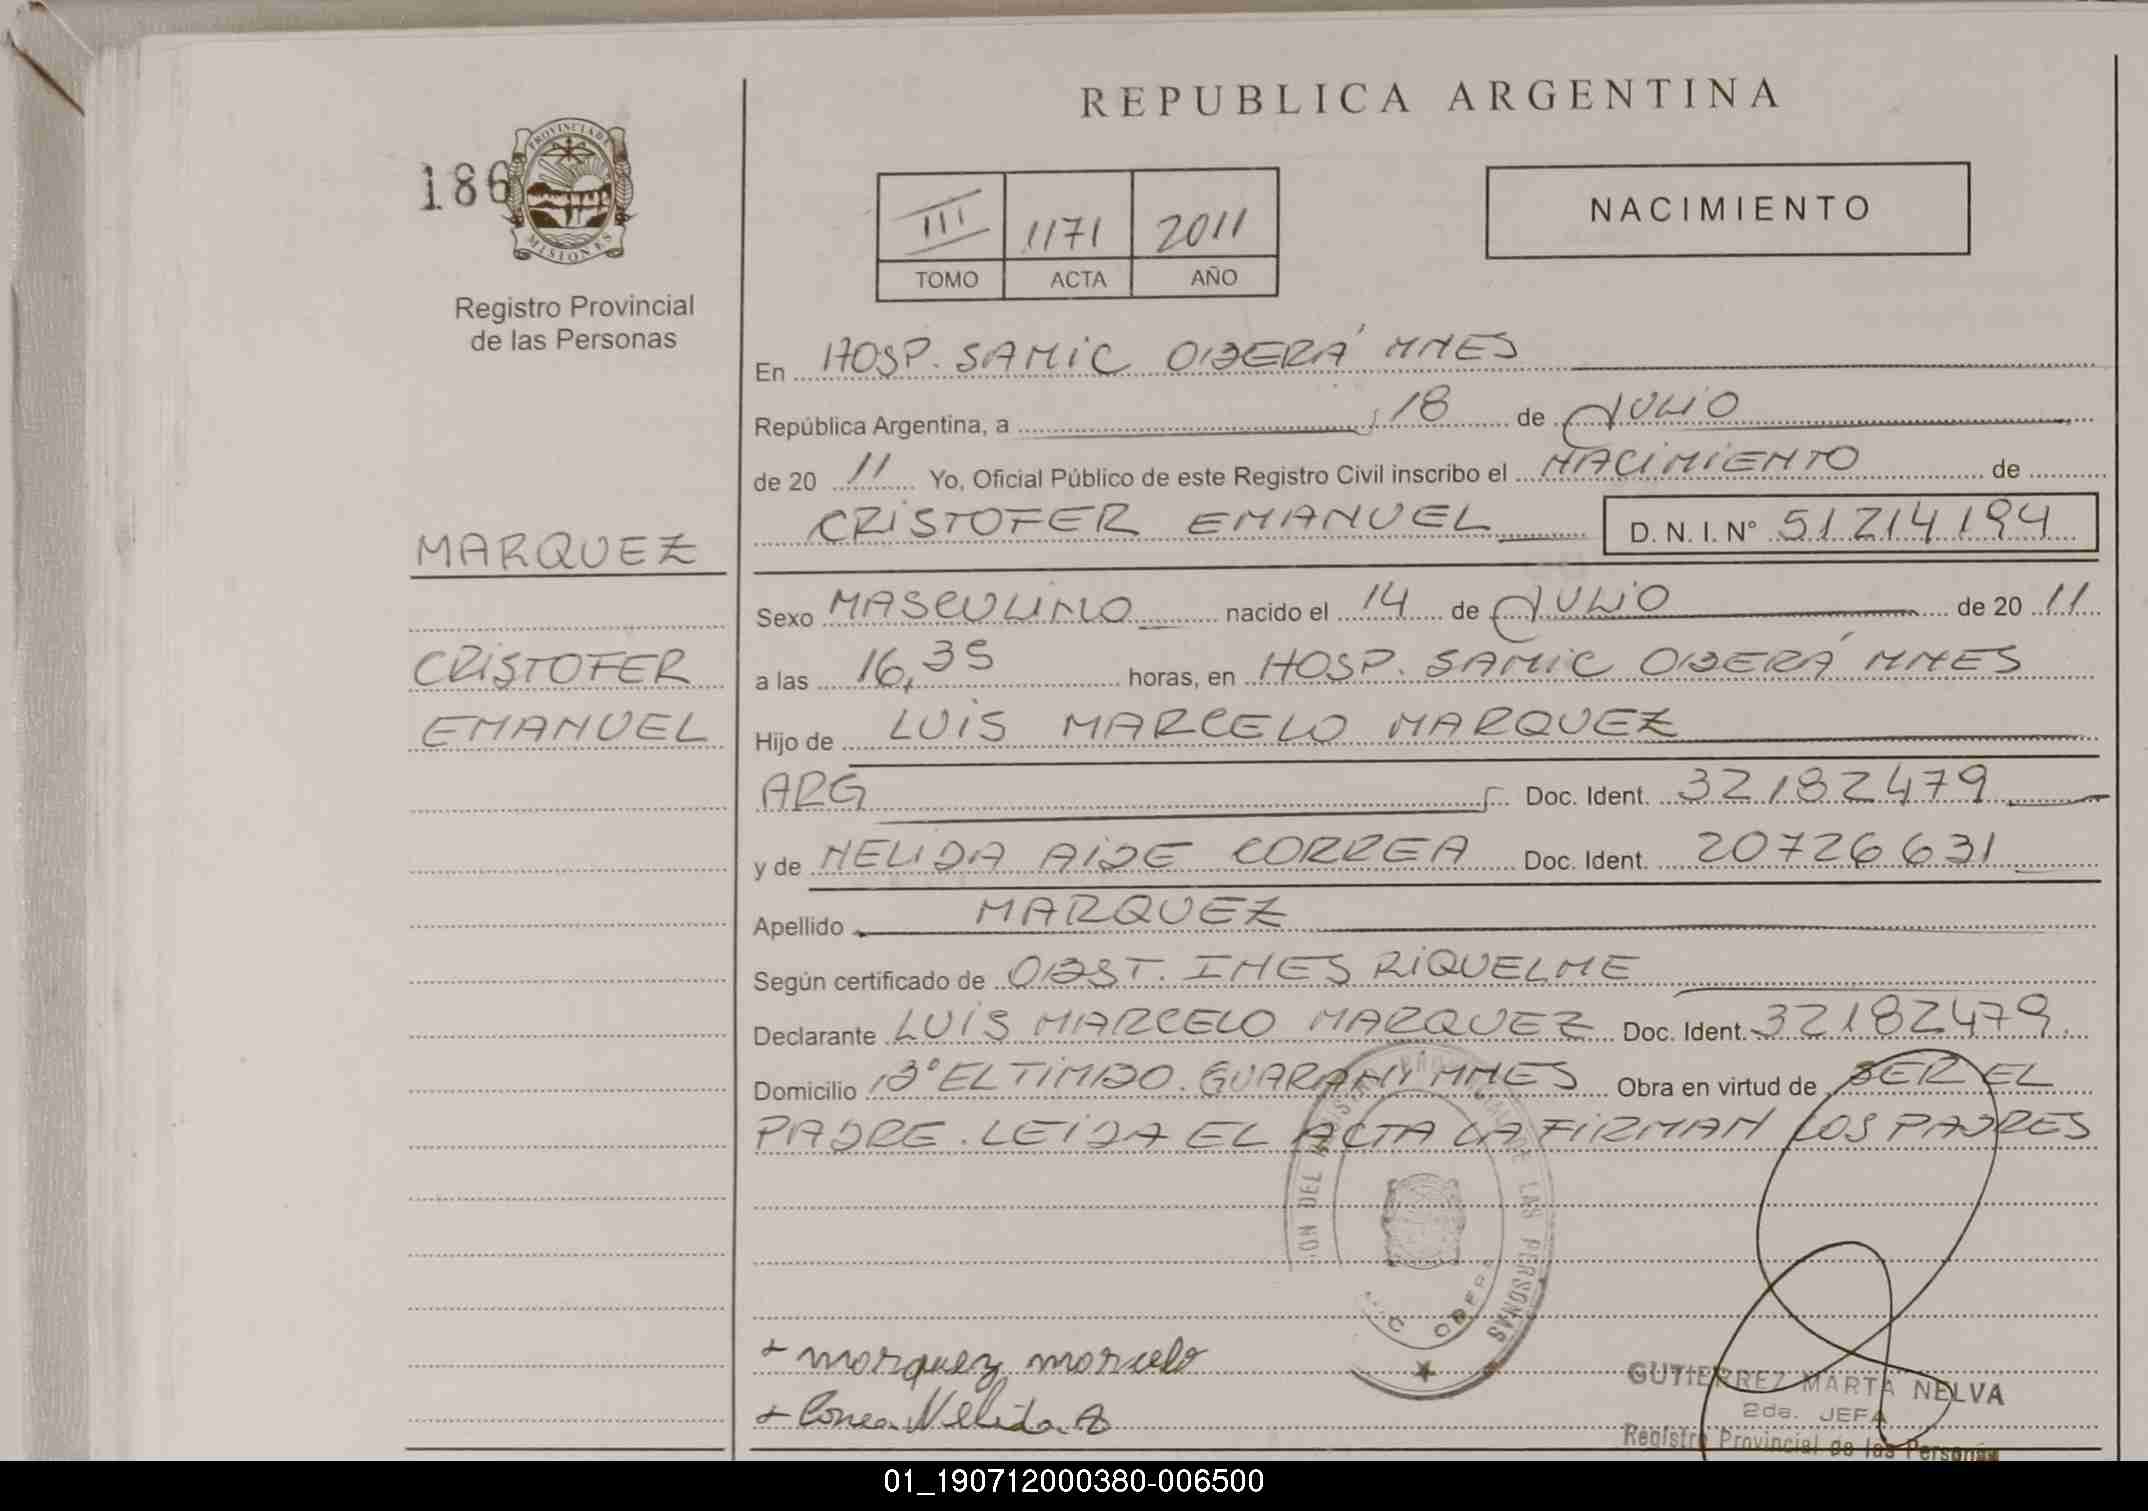 REPUBLICA ARGENTINA
186
PROVINCIA DE
MISIONES
Registro Provincial
de las Personas
III 1171 2011
TOMO ACTA AÑO
NACIMIENTO
En HOSP. SAMIC OBERÁ MNES
República Argentina, a 18 de JULIO
de 20 11 Yo, Oficial Público de este Registro Civil inscribo el NACIMIENTO de
CRISTOFER EMANUEL D. N. I. N° 51.214.194
MARQUEZ
CRISTOFER
EMANUEL
Sexo MASCULINO nacido el 14 de JULIO de 20 11
a las 16,35 horas, en HOSP. SAMIC OBERÁ MNES
Hijo de LUIS MARCELO MARQUEZ
ARG Doc. Ident. 32182479
y de NELIDA AIDE CORREA Doc. Ident. 20726631
Apellido MARQUEZ
Según certificado de OBST. INES RIQUELME
Declarante LUIS MARCELO MARQUEZ Doc. Ident. 32182479
Domicilio B° EL TIMBO. GUARANI MNES Obra en virtud de SER EL
PADRE. LEIDA EL ACTA LA FIRMAN LOS PADRES
LAS PERSONAS
OBERA
+ marquez marcelo
+ Correa Nelida A
GUTIERREZ MARTA NELVA
2da. JEFA
Registro Provincial de las Personas
01_190712000380-006500